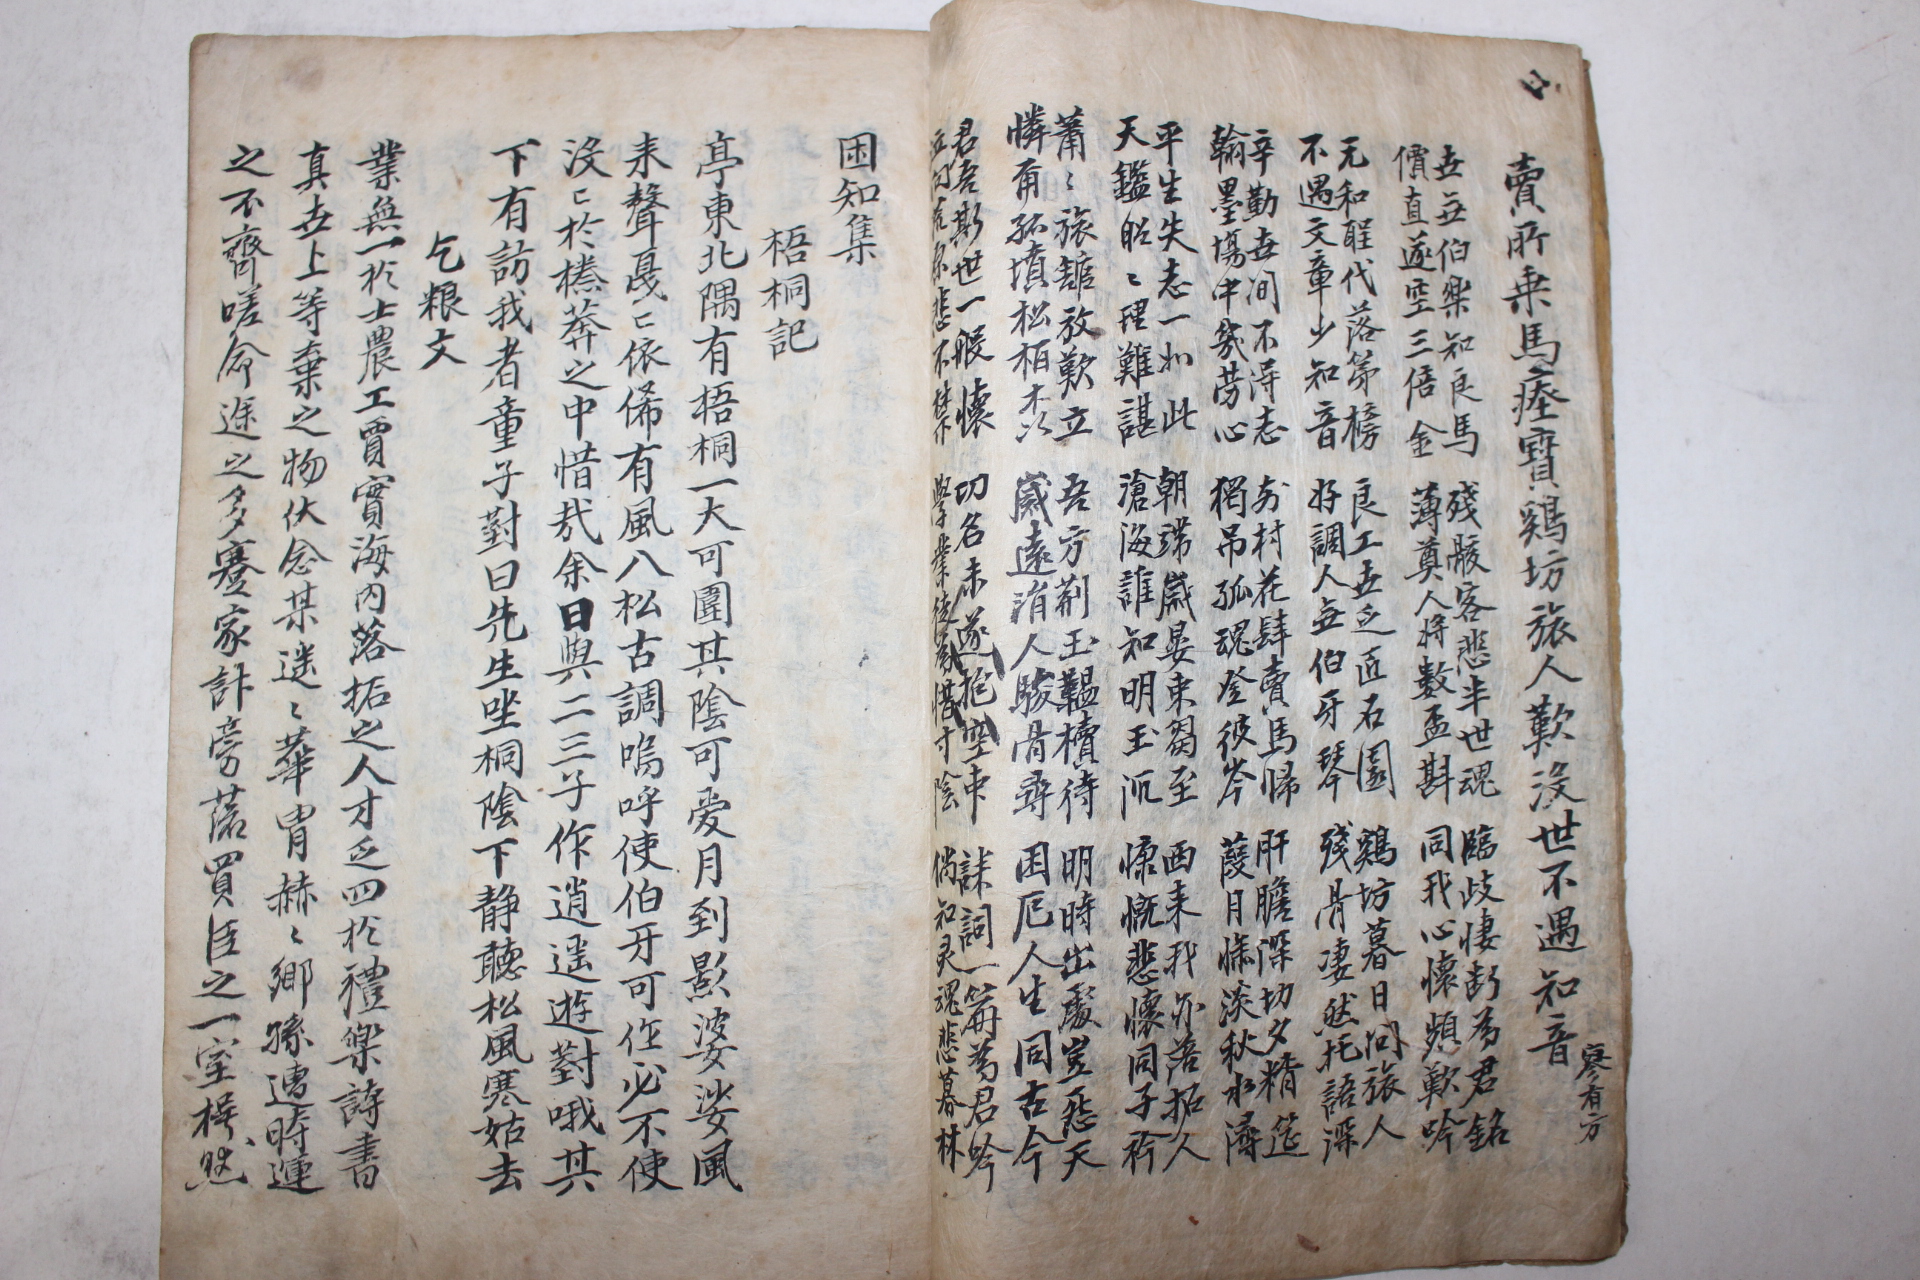 賣所乘馬瘞寶鷄坊旅人歎沒世不遇知音
廖有方
世無伯樂知良馬 殘骸客悲半世魂 臨歧悽斷為君銘
價直遂空三倍金 薄奠人將數盃斟 同我心懷頻歎吟
元和聖代落第榜 良工世乏匠石園 鷄坊暮日問旅人
不遇文章少知音 好調人無伯牙琴 殘骨凄然托語深
辛勤世間不得志 村花肆賣馬歸 肝膽深切夕精筵
翰墨場中幾勞心 獨吊孤魂登彼岑 葭月條淡秋水潯
平生失志一如此 朝湍歲晏東蜀至 西來我亦落拓人
天鑑昭〻理難諶 滄海誰知明玉沉 慷慨悲懷同子衿
蕭〻旅舘放歎立 吾方荊玉韞櫝待 明時出處豈恶天
憐甭孤墳松栢森 歲遠消人駿骨尋 困厄人生同古今
君吾斯世一般懷 功名未遂抱空中 誄詞一篇為君吟
不禁 學業徒為惜寸陰 倘知灵魂悲暮林
困知集
梧桐記
亭東北隅有梧桐一大可圍其陰可愛月到影婆娑風
来聲戛〻依俙有風八松古調嗚呼使伯牙可作必不使
沒〻於榛莽之中惜哉余日與二三子作逍遥遊對哦其
下有訪我者童子對曰先生坐桐陰下静聽松風寒姑去
乞粮文
業無一於士農工賈實海内落拓之人才乏四於禮樂詩書
真世上等棄之物伏念某迷〻華胄赫〻鄉孫遭時運
之不齊嗟命途之多蹇家計旁落買臣之一室枵然